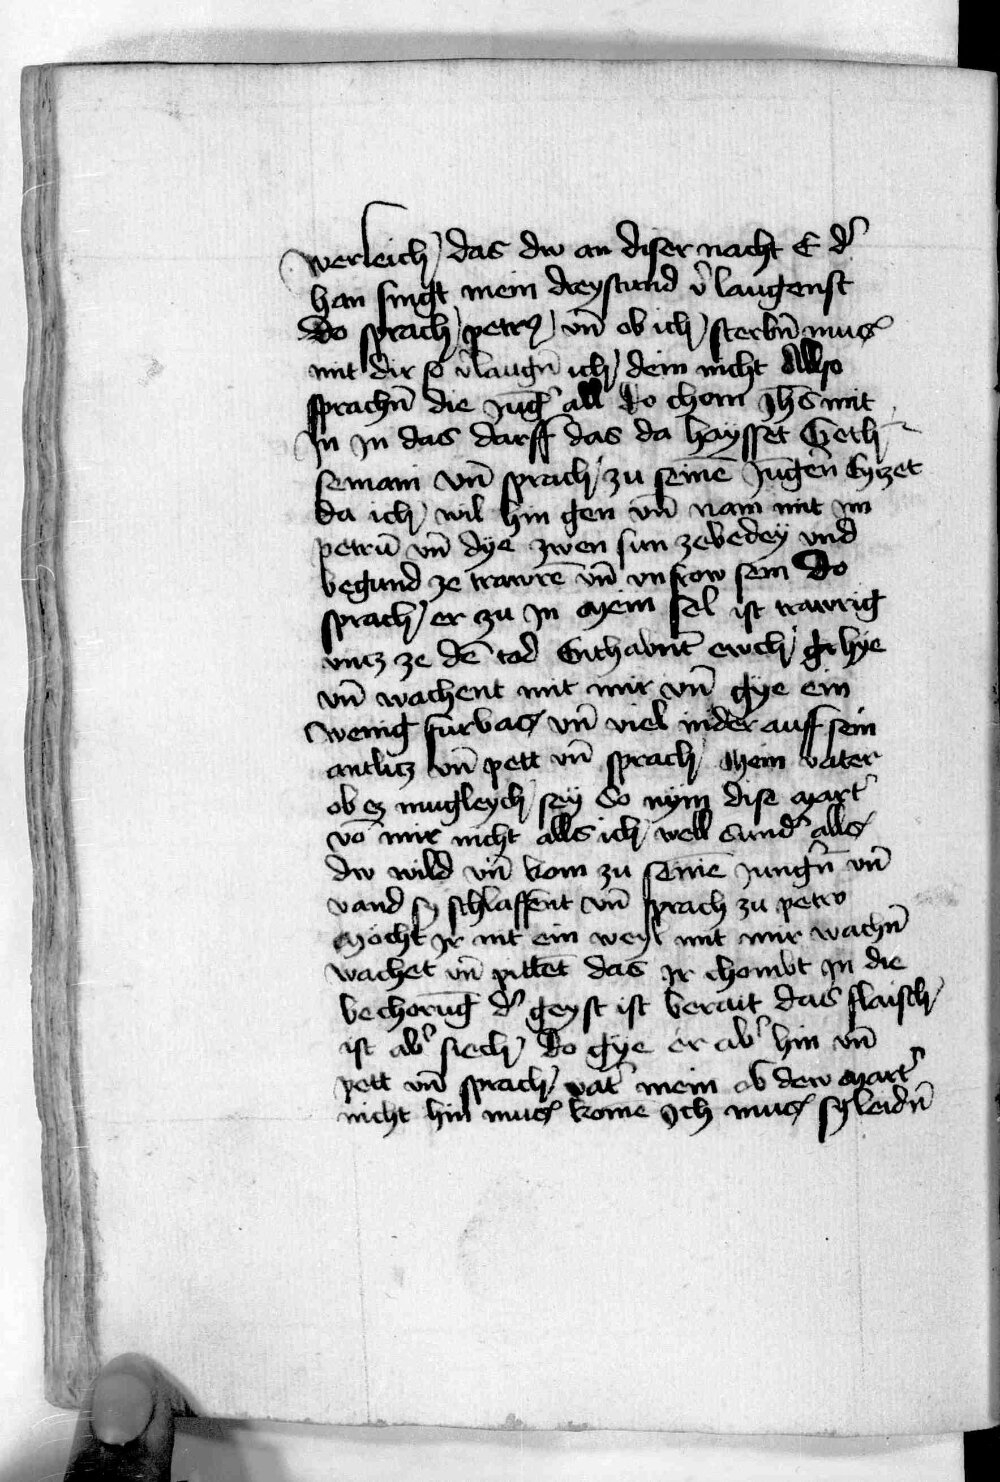 werleich das dw an diser nacht E d'
han singt mein dreystund v'laugenst
Do sprach petr9 vn̄ ob ich sterbn̄ mus
mit dir so v'laugn̄ ich dein nicht Allso
sprachn̄ die Jūg' all Do chom Jhs̄ mit
In In das darff das da haysset Geth
semani vn̄ sprach zu seinē Jūgern̄ Syzet
da ich wil hin gen vn̄ nam mit im
petrū vn̄ dye zwen sun zebedeÿ vnd
begund ze trawrē vn̄ vnfrow sein Do
sprach er zu In Mein sel ist trawrig
vntz ze dē tod Enthabnt̄ ewch hye
vn̄ wachent mit mir vn̄ gye ein
wenig furbas vn̄ viel nider auff sein
antlitz vn̄ pett vn̄ sprach Mein vater
ob ez mugleych seÿ So nÿm dise Mart'
vō mir nicht alls ich well Sund' alls
dw wild vn̄ kom zu seinē Jungn̄ vn̄
vand sy schlaffent vn̄ sprach zu petro
Mocht Jr nit ein weyl mit mir wachn̄
wachet vn̄ pittet das Jr chombt In die
bechorūg d' geyst ist berait das flaisch
ist ab' siech Do gye er ab' hin vn̄
pett vn̄ sprach vat' mein ob dew Mart'
nicht hin mus komē Ich mus sy leidn̄